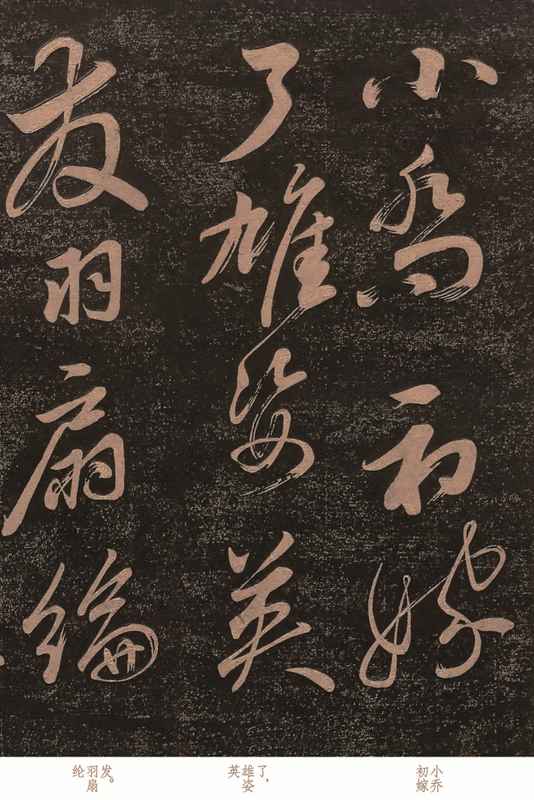 小乔初嫁
了雄姿英
发羽扇纶
小乔初嫁
了，雄姿英
发。羽扇纶